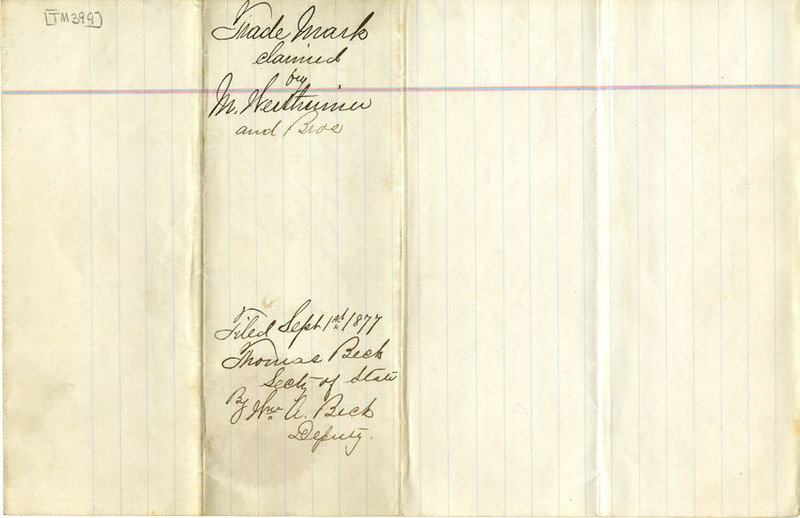 [TM399]
Trade Mark
claimed
by
M. Wertheimer
and Bros
Filed Sept 1st 1877
Thomas Beck
Secty of State
By Wm A. Beck
Deputy.